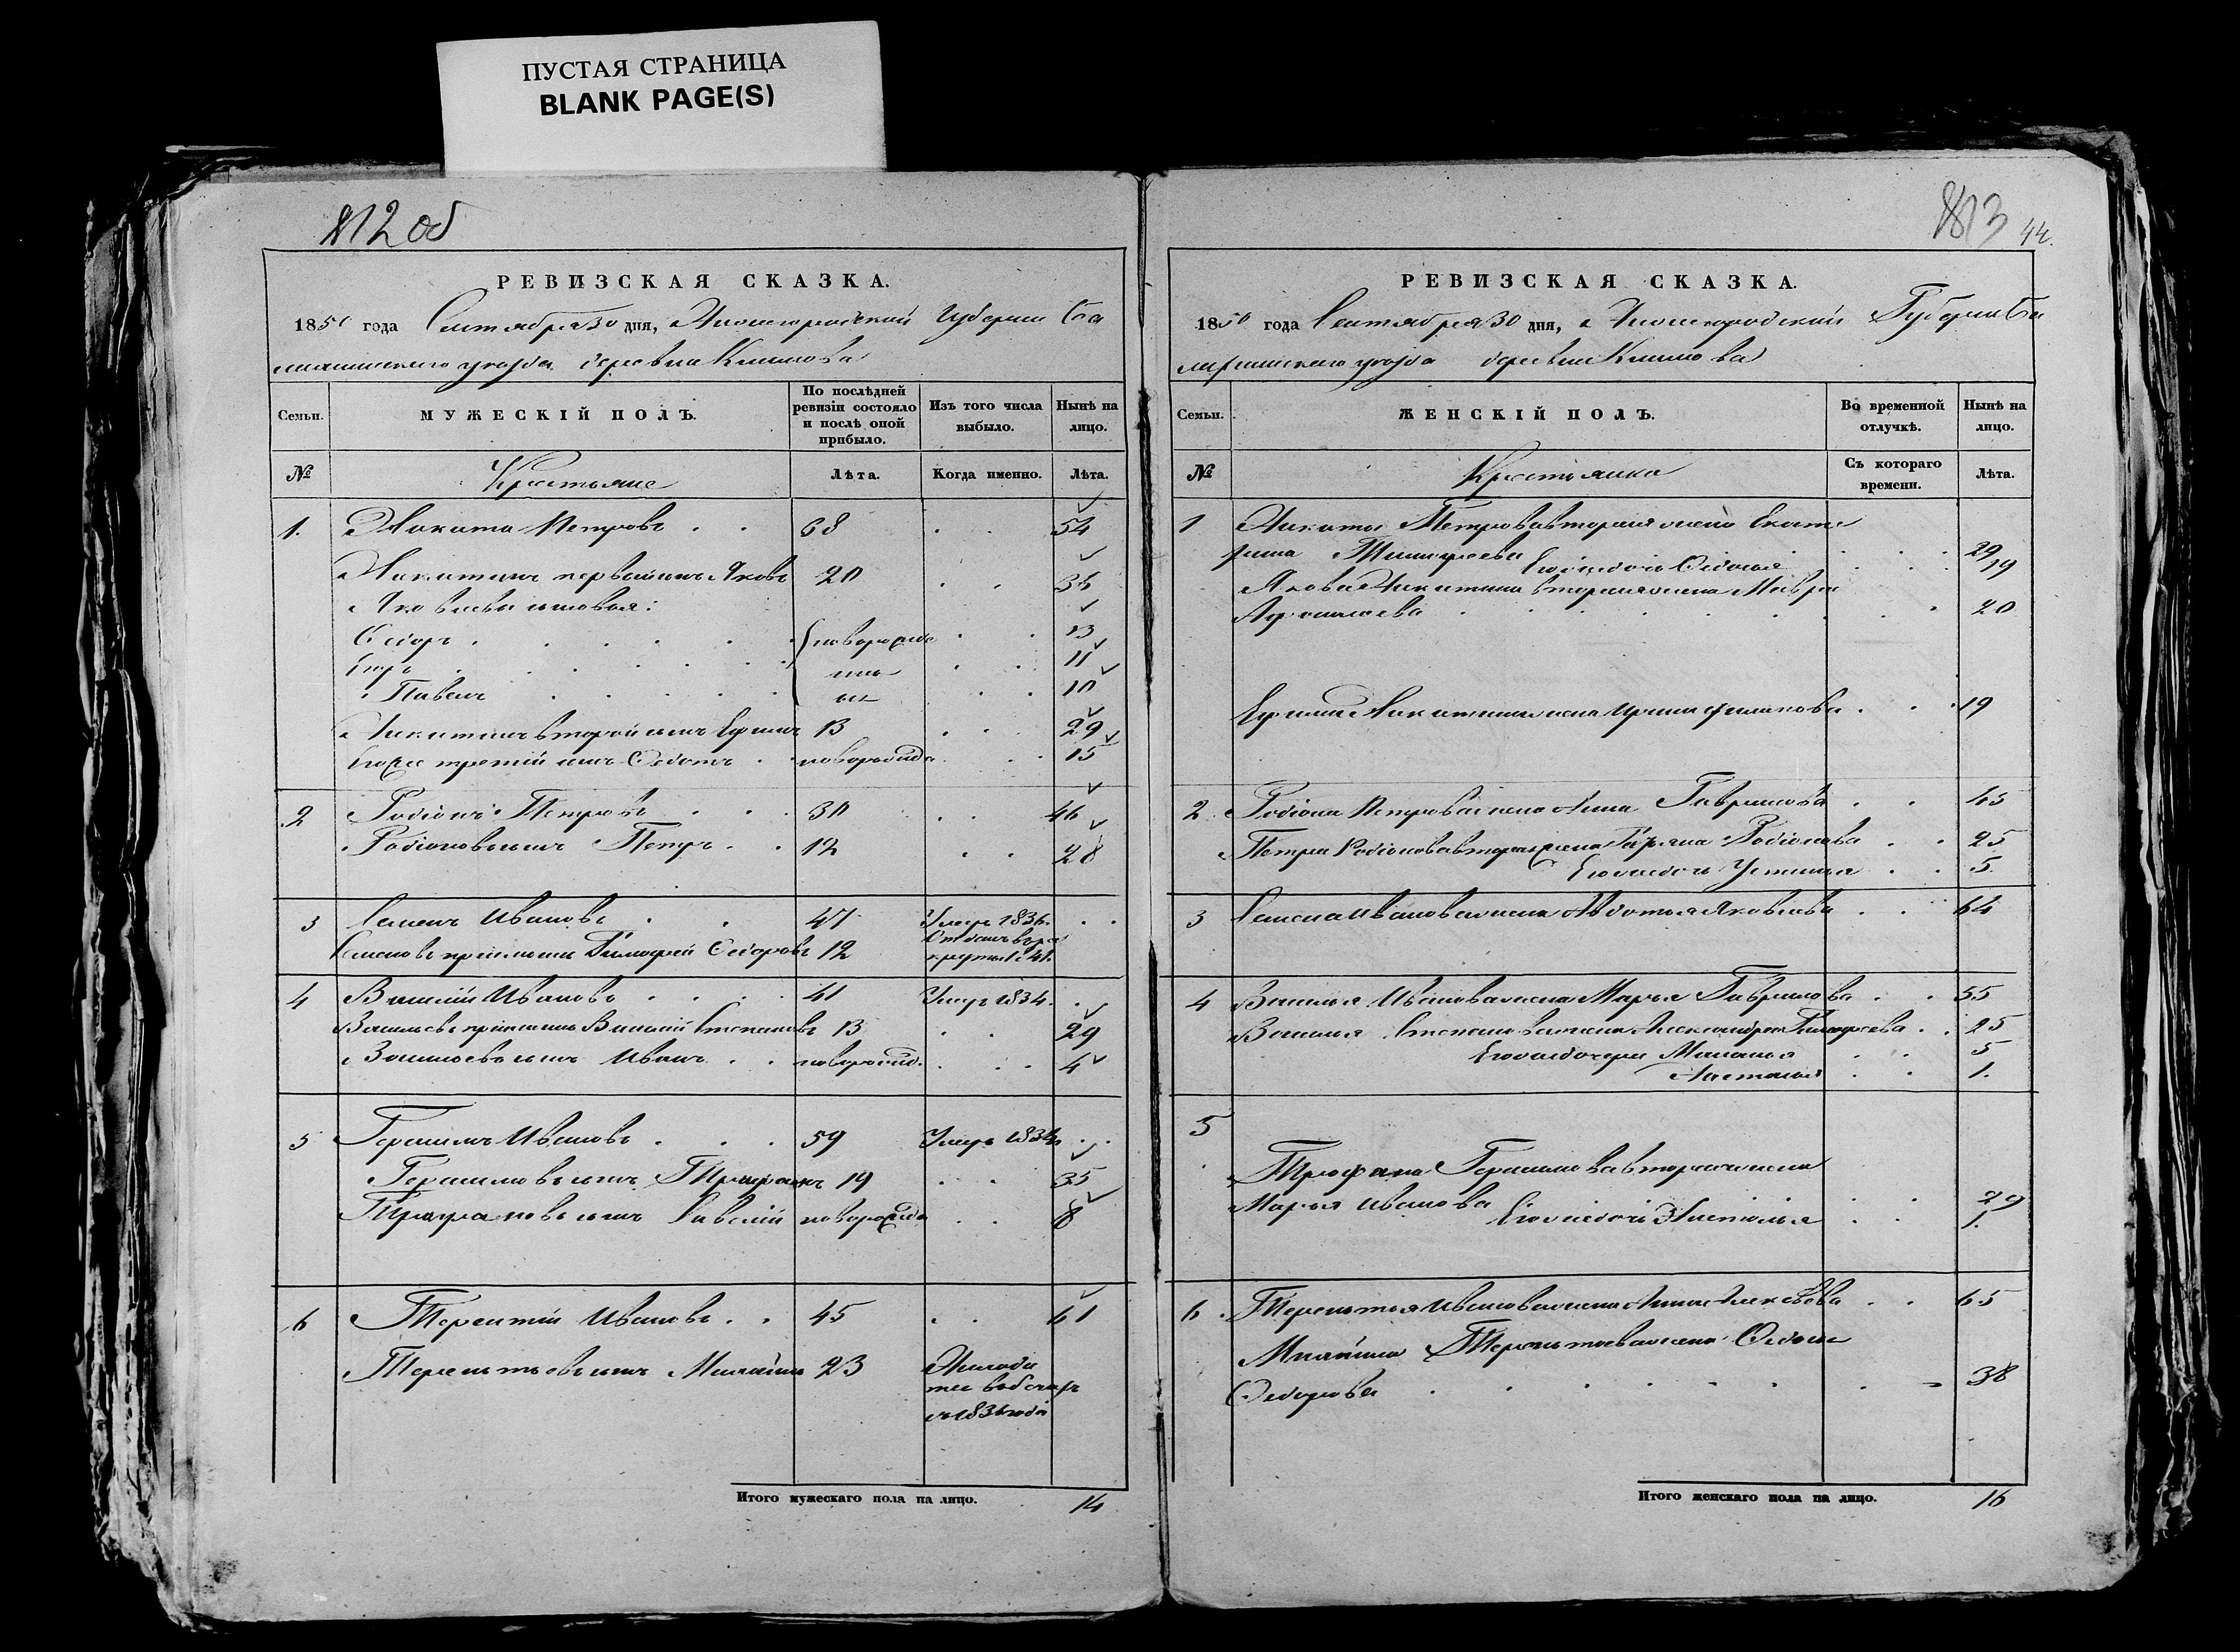 ПУСТАЯ СТРАНИЦА
BLANK PAGE(S)
812 об
РЕВИЗСКАЯ СКАЗКА.
1850 года Сентября 30 дня, Нижегородской Губернии
уезда деревни Климова
Семьи.
МУЖЕСКІЙ ПОЛЪ.
По послѣдней ревизіи состояло и послѣ оной прибыло.
Изъ того числа выбыло.
Нынѣ на лицо.
№
Крестьяне
Лѣта.
Когда именно.
Лѣта.
1. Никита Петровъ . . 68 . . 54
Никитинъ первый сынъ Яковъ 20 . . 36
Яковлевы сыновья:
13
Егоръ 11
Павелъ 10
Никитинъ второй сынъ Ефимъ 13 . . 29
Егоже третій сынъ Ѳедотъ . новорожд. . . 15
2 Родіонъ Петровъ 30 . . 46
Родіоновъ сынъ Петръ . . 12 . . 28
3 Семенъ Ивановъ . . 47 Умеръ 1836. . .
Семеновъ пріемышъ Тимофей Ѳедоровъ 12 Отданъ въ рекруты 1841.
4 Василій Ивановъ . . . . 41 Умеръ 1834. . .
Васильевъ пріемышъ Василій Степановъ 13 . . 29
Васильевъ сынъ Иванъ . . новорожд. . . . 4
5 Герасимъ Ивановъ . . . 59 Умеръ 1834. . .
Герасимовъ сынъ Трофимъ 19 . . 35
сынъ Савелій новорожд. . . 8
6 Терентій Ивановъ . . 45 . . 61
Терентьевъ сынъ Михайла 23
съ 1836 года
Итого мужескаго пола на лицо. 14
813 44.
РЕВИЗСКАЯ СКАЗКА.
1850 года Сентября 30 дня, Нижегородской Губерніи
уезда деревни Климова
Семьи.
ЖЕНСКІЙ ПОЛЪ.
Во временной отлучкѣ.
Нынѣ на лицо.
№
Крестьянка
Съ котораго времени.
Лѣта.
1 Никиты Петрова вторая жена Екате
рина Тимофеева . . . 29
Его дочь Ѳедосья . . . 19
Якова Никитина вторая жена Мавра
. . . 20
Ефима Никитина жена Ирина . . . 19
2 Родіона Петрова жена Анна Гаврилова . . 45
Петра Родіонова вторая жена Родіонова . . 25
Его дочь Устинья . . 5.
3 Семена Иванова жена Авдотья Яковлева . . 64
4 Василья Иванова жена Марья Гаврилова . . 55
Василья Степанова жена Александра Тимофеева . . 25
Его дочери Маланья . . 5
Настасья . . 1.
5
Герасимова вторая жена
Марья Иванова . . 29
Его дочь Настасья . . 1.
6 Терентья Иванова жена Анна Алексѣева . . 65
Михайла Терентьева жена Ѳедосья
Ѳедорова . . . 38
Итого женскаго пола на лицо. 16